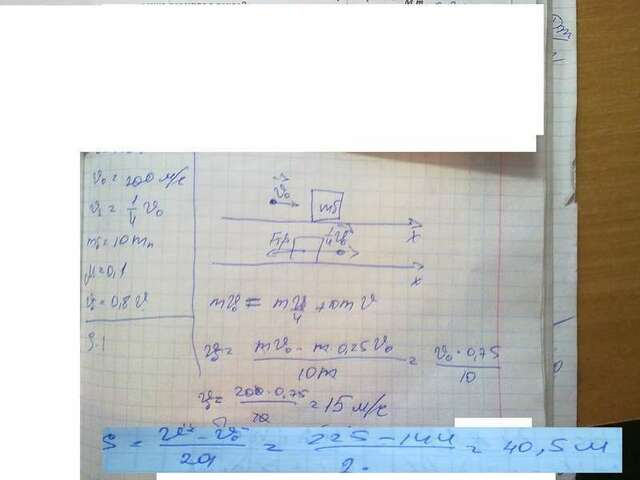 v₀ = 200 м/с
v₁ = 1/4 v₀
mб = 10 mп
μ = 0,1
v₂ = 0,8 v
S - ?
v₀
mб
x
Fтр 1/4 v₀
x
mv₀ = m v₀/4 + 10m v
v₂ = (mv₀ - m·0,25v₀)/10m = (v₀·0,75)/10
v₂ = (200·0,75)/10 = 15 м/с
S = (v² - v₀²)/2a = (225 - 144)/2· = 40,5 м